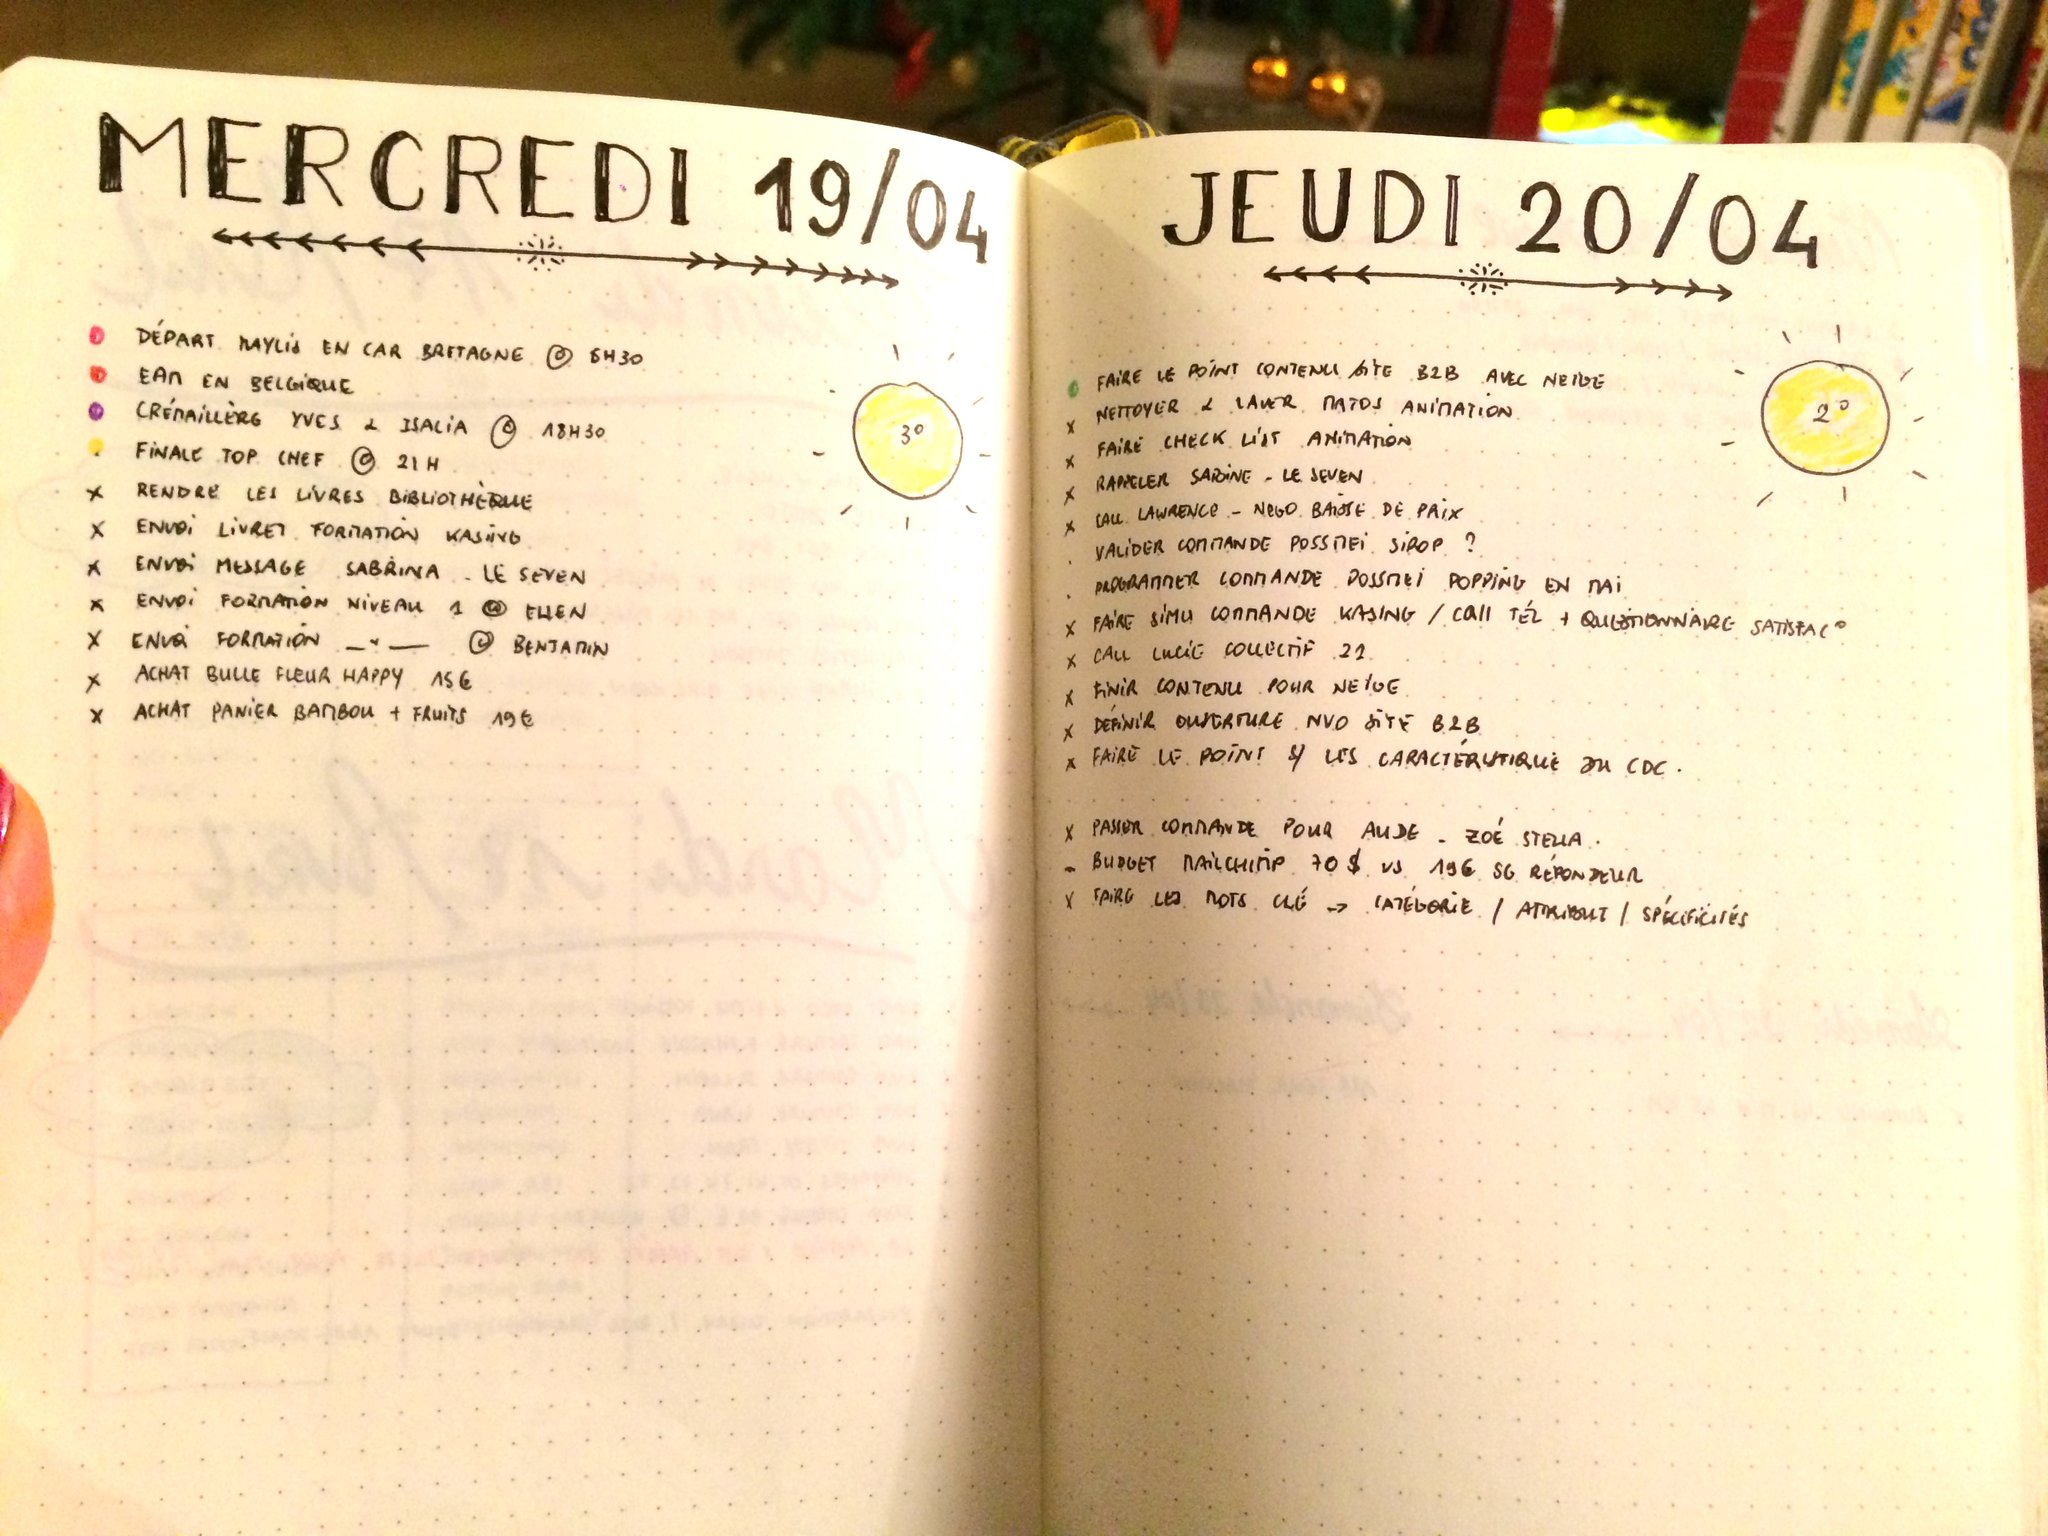 MERCREDI 19/04
DÉPART MAYLIS EN CAR BRETAGNE @ 6H30
EAM EN BELGIQUE
CRÉMAILLÈRE YVES & ISALIA @ 18H30
FINALE TOP CHEF @ 21H
x RENDRE LES LIVRES BIBLIOTHÈQUE
x ENVOI LIVRET FORMATION KASING
x ENVOI MESSAGE SABRINA - LE SEVEN
x ENVOI FORMATION NIVEAU 1 @ ELLEN
x ENVOI FORMATION _"_ @ BENJAMIN
x ACHAT BULLE FLEUR HAPPY 15€
x ACHAT PANIER BAMBOU + FRUITS 19€
3°
JEUDI 20/04
FAIRE LE POINT CONTENU SITE B2B AVEC NEIGE
x NETTOYER & LAVER MATOS ANIMATION
x FAIRE CHECK LIST ANIMATION
x RAPPELER SABINE - LE SEVEN
x CALL LAWRENCE - NEGO BAISSE DE PRIX
. VALIDER COMMANDE POSSMEI SIROP ?
. PROGRAMMER COMMANDE POSSMEI POPPING EN MAI
x FAIRE SIMU COMMANDE KASING / CALL TÉL + QUESTIONNAIRE SATISFAC°
x CALL LUCIE COLLECTIF 21
x FINIR CONTENU POUR NEIGE
x DÉFINIR OUVERTURE NVO SITE B2B
x FAIRE LE POINT S/ LES CARACTÉRISTIQUE DU CDC.
x PASSER COMMANDE POUR AUDE - ZOÉ STELLA.
- BUDGET MAILCHIMP 70$ VS 19€ SG RÉPONDEUR
x FAIRE LES MOTS CLÉ -> CATÉGORIE / ATTRIBUT / SPÉCIFICITÉS
2°